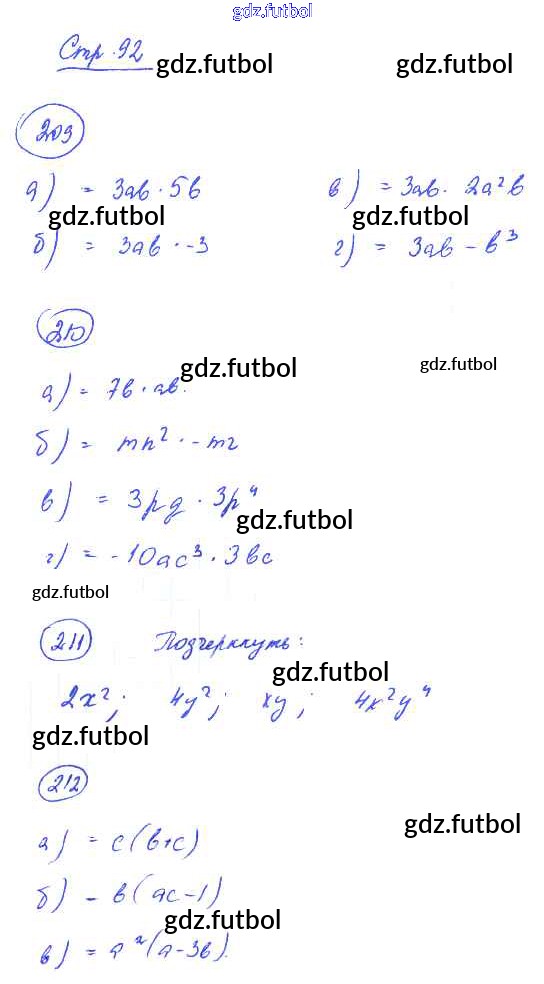 gdz.futbol
Стр. 92
gdz.futbol gdz.futbol
209
а) = 3ab · 5b в) = 3ab · 2a²b
gdz.futbol gdz.futbol
б) = 3ab · -3 г) = 3ab - b³
210
gdz.futbol gdz.futbol
а) = 7b · ab.
б) = mn² · -m2
в) = 3pq · 3p⁴
gdz.futbol
г) = -10ac³ · 3bc
gdz.futbol
211 Подчеркнуть:
gdz.futbol
2x²; 4y²; xy; 4x²y⁴
gdz.futbol
212
gdz.futbol
а) = c(b+c)
б) = b(ac-1)
gdz.futbol
в) = a²(a-3b).